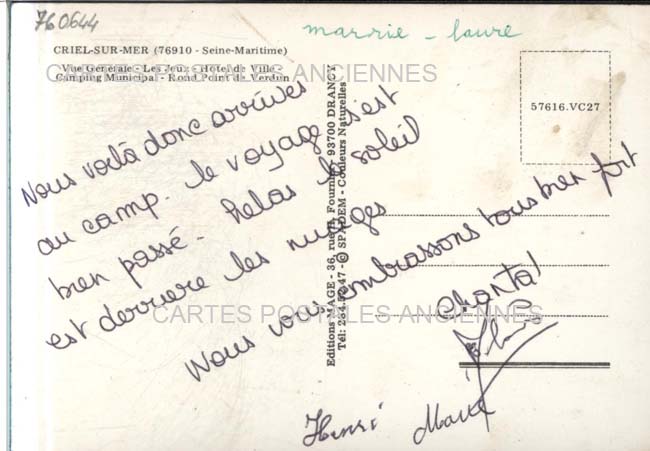 760644
marrie - laure
CRIEL-SUR-MER (76910 - Seine-Maritime)
Vue Générale - Les Jeux - Hôtel de Ville
Camping Municipal - Rond Point de Verdun
CARTES POSTALES ANCIENNES
57616.VC27
Nous voilà donc arrivés
au camp. le voyage s'est
bien passé - helas le soleil
est derriere les nuages
Nous vous embrassons tous bien fort
Editions MAGE - 36, rue H. Fournier - 93700 DRANCY
Tél: 284.52.47 - © SPADEM - Couleurs Naturelles
CARTES POSTALES ANCIENNES
Chantal
Henri Marie